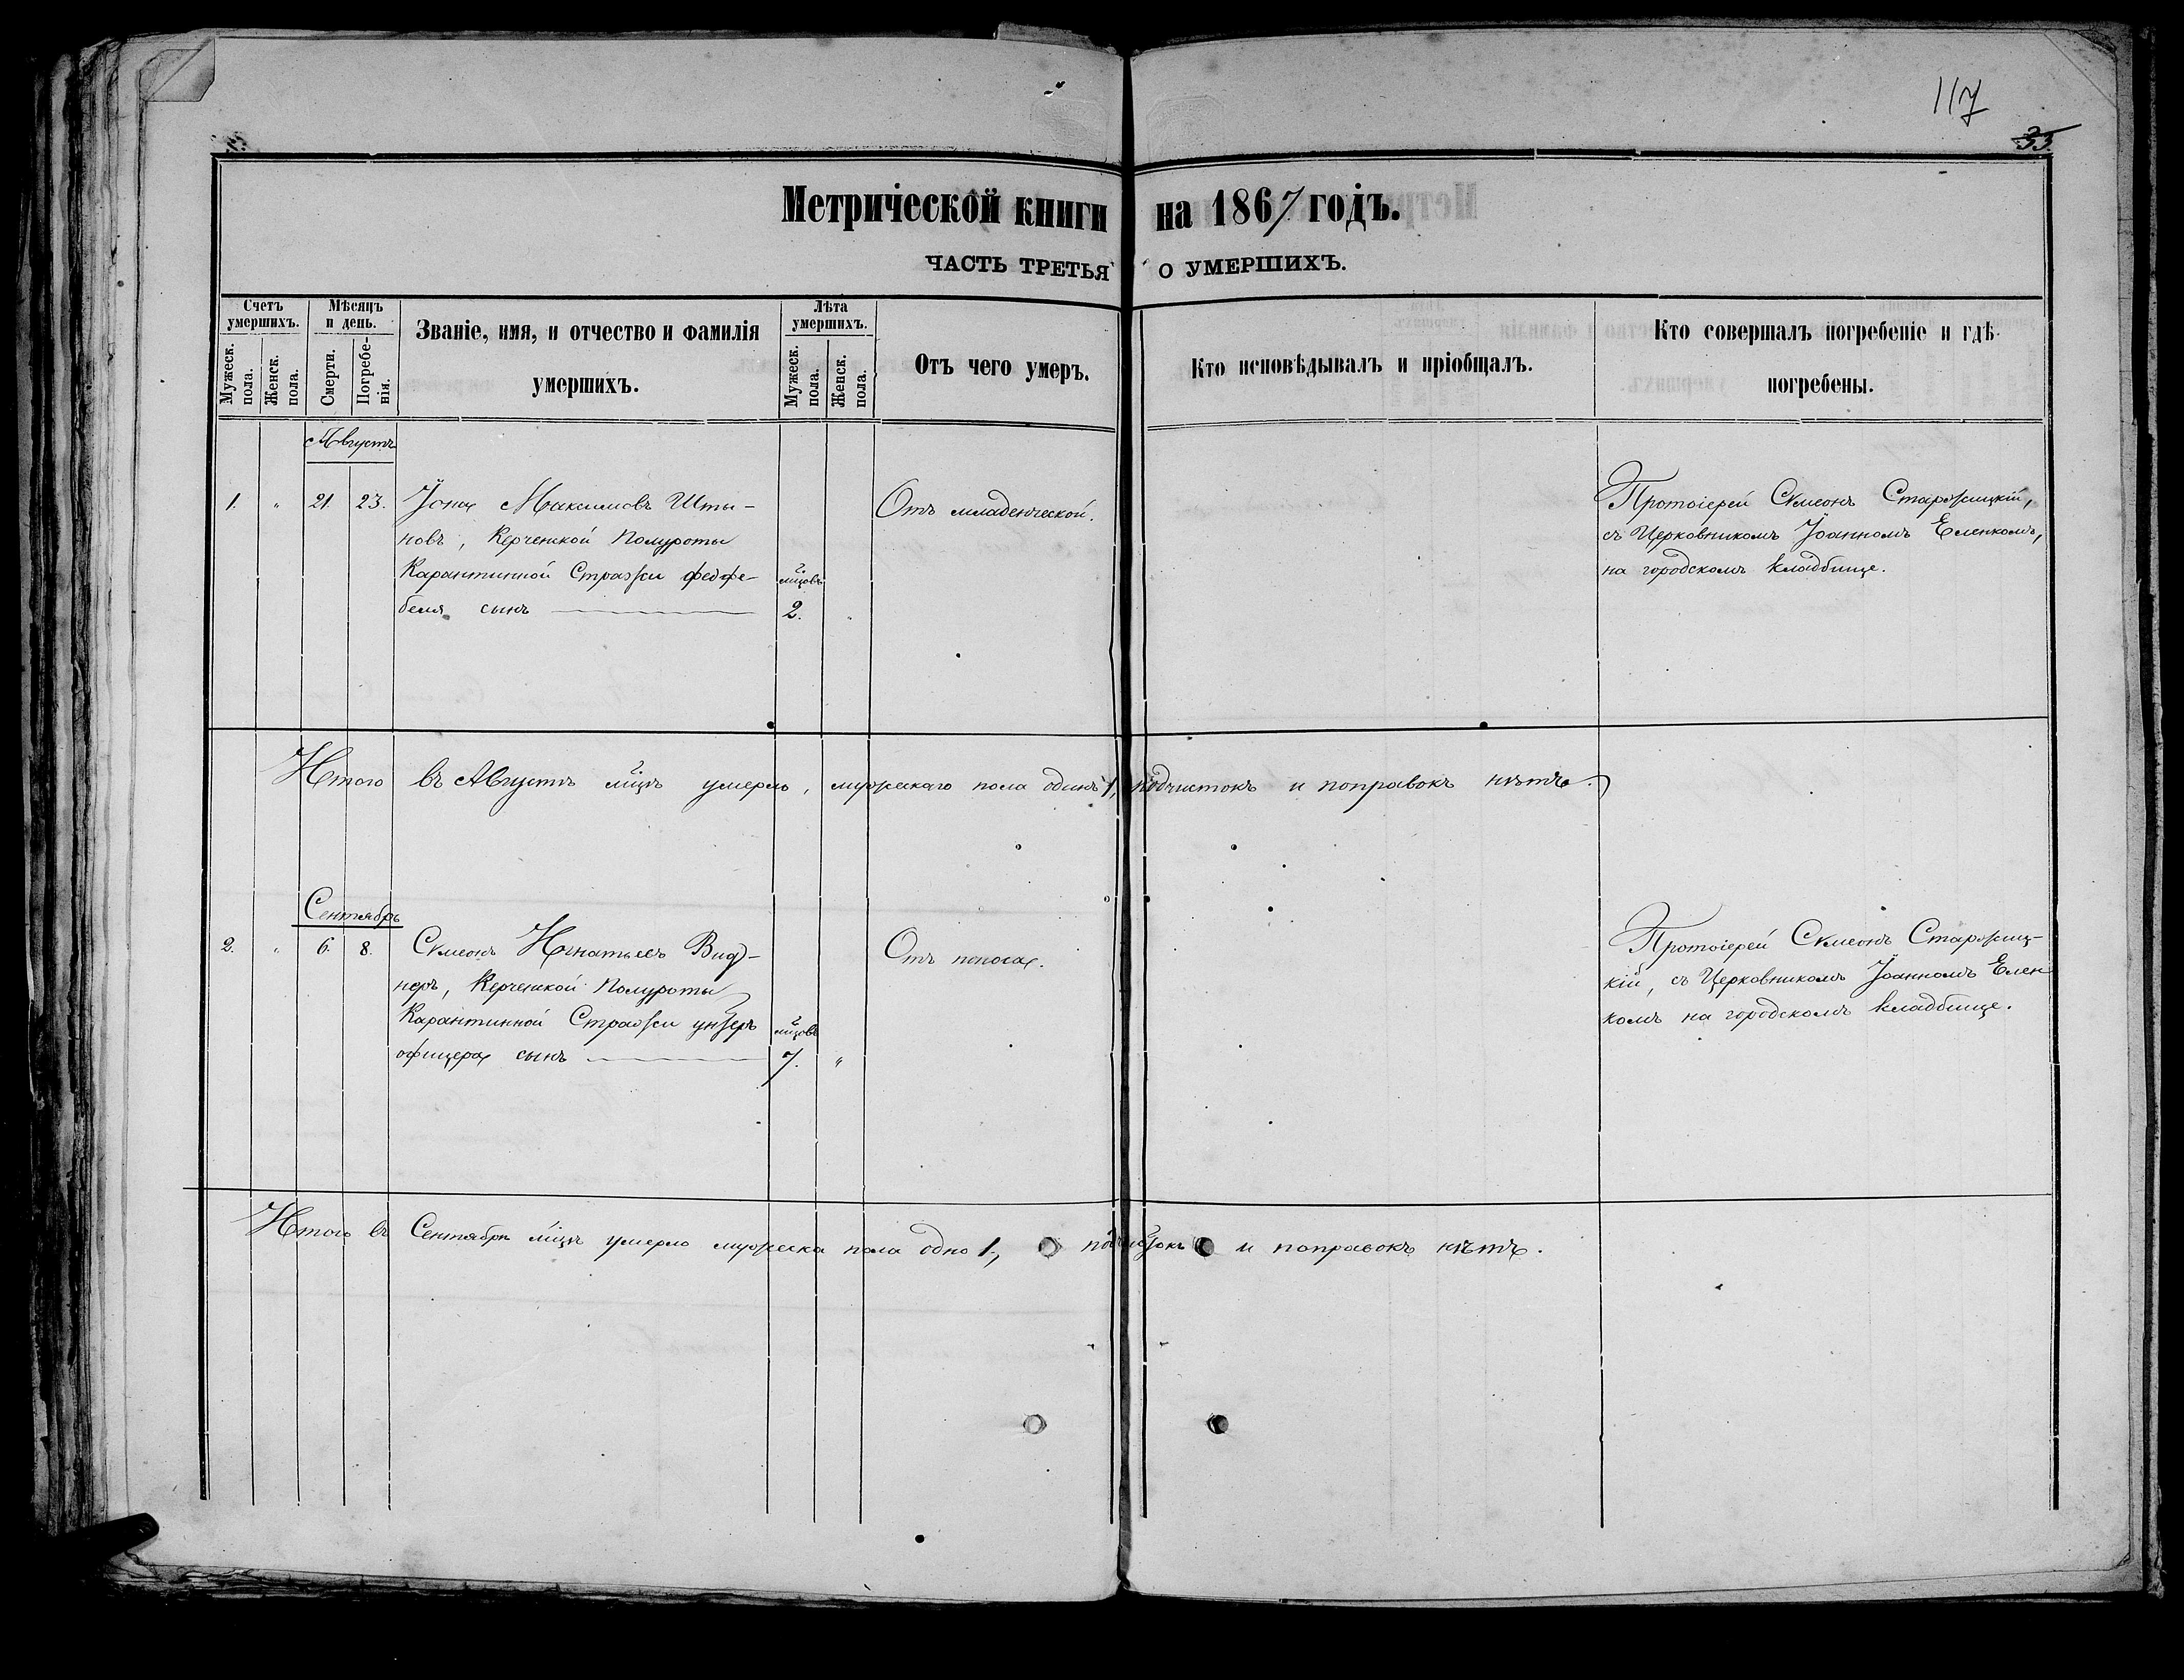 117
35.
Метрической книги на 1867 годъ.
ЧАСТЬ ТРЕТЬЯ О УМЕРШИХЪ.
Счетъ умершихъ.
Мужеск. пола.
Женск. пола.
Мѣсяцъ и день.
Смерти.
Погребенія.
Званіе, имя, и отчество и фамилія
умершихъ.
Лѣта умершихъ.
Мужеск. пола.
Женск. пола.
Отъ чего умеръ.
Кто исповѣдывалъ и пріобщалъ.
Кто совершалъ погребеніе и гдѣ
погребены.
Августъ
1. " 21. 23. Іона Максимовъ Шты-
новъ, Керченской Полуроты
Карантинной Стражи фельдфе-
беля сынъ
мцовъ
2.
Отъ младенческой.
Протоіерей Сѵмеонъ Старожицкій,
съ Церковникомъ Іоанномъ Еленкомъ,
на городскомъ кладбище.
Итого въ Августѣ мцѣ умерло, мужескаго пола одинъ 1, подчистокъ и поправокъ нѣтъ.
Сентябрь
2. " 6. 8. Сѵмеонъ Игнатьевъ Вид-
неръ, Керченской Полуроты
Карантинной Стражи унтеръ
офицера сынъ
мцовъ
7. "
Отъ поноса.
Протоіерей Сѵмеонъ Старожиц-
кій, съ Церковникомъ Іоанномъ Елен
комъ на городскомъ кладбище.
Итого въ Сентябрѣ мцѣ умерло мужеска пола одно 1, подчистокъ и поправокъ нѣтъ.